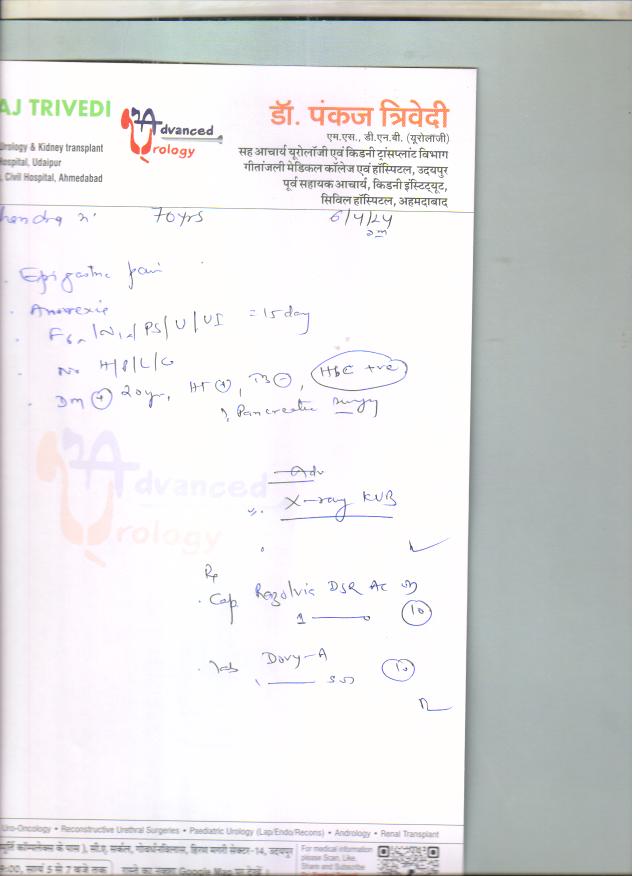 AJ TRIVEDI
Urology & Kidney transplant
Hospital, Udaipur
Civil Hospital, Ahmedabad
Advanced
Urology
डॉ. पंकज त्रिवेदी
एम.एस., डी.एन.बी. (यूरोलॉजी)
सह आचार्य यूरोलॉजी एवं किडनी ट्रांसप्लांट विभाग
गीतांजली मेडिकल कॉलेज एवं हॉस्पिटल, उदयपुर
पूर्व सहायक आचार्य, किडनी इंस्टिट्यूट,
सिविल हॉस्पिटल, अहमदाबाद
70yrs 6/4/24
Epigastric pain
Anorexia
PS/U/UI = 15 day
No H/P/L/G
DM + 20yr, HT +, TB -, HBC +ve
Pancreatic surgery
Advanced
Urology
Adv
X-ray KUB
Rx
Cap DSR AC
1 10
Tab A
1 SOS 10
Uro-Oncology • Reconstructive Urethral Surgeries • Paediatric Urology (Lap/Endo/Recons) • Andrology • Renal Transplant
मूर्ति कॉम्पलेक्स के पास), सी.ए. सर्कल, गोवर्धनविलास, हिरण मगरी सेक्टर-14, उदयपुर
9:00, सायं 5 से 7 बजे तक
For medical information
please Scan, Like,
Share and Subscribe